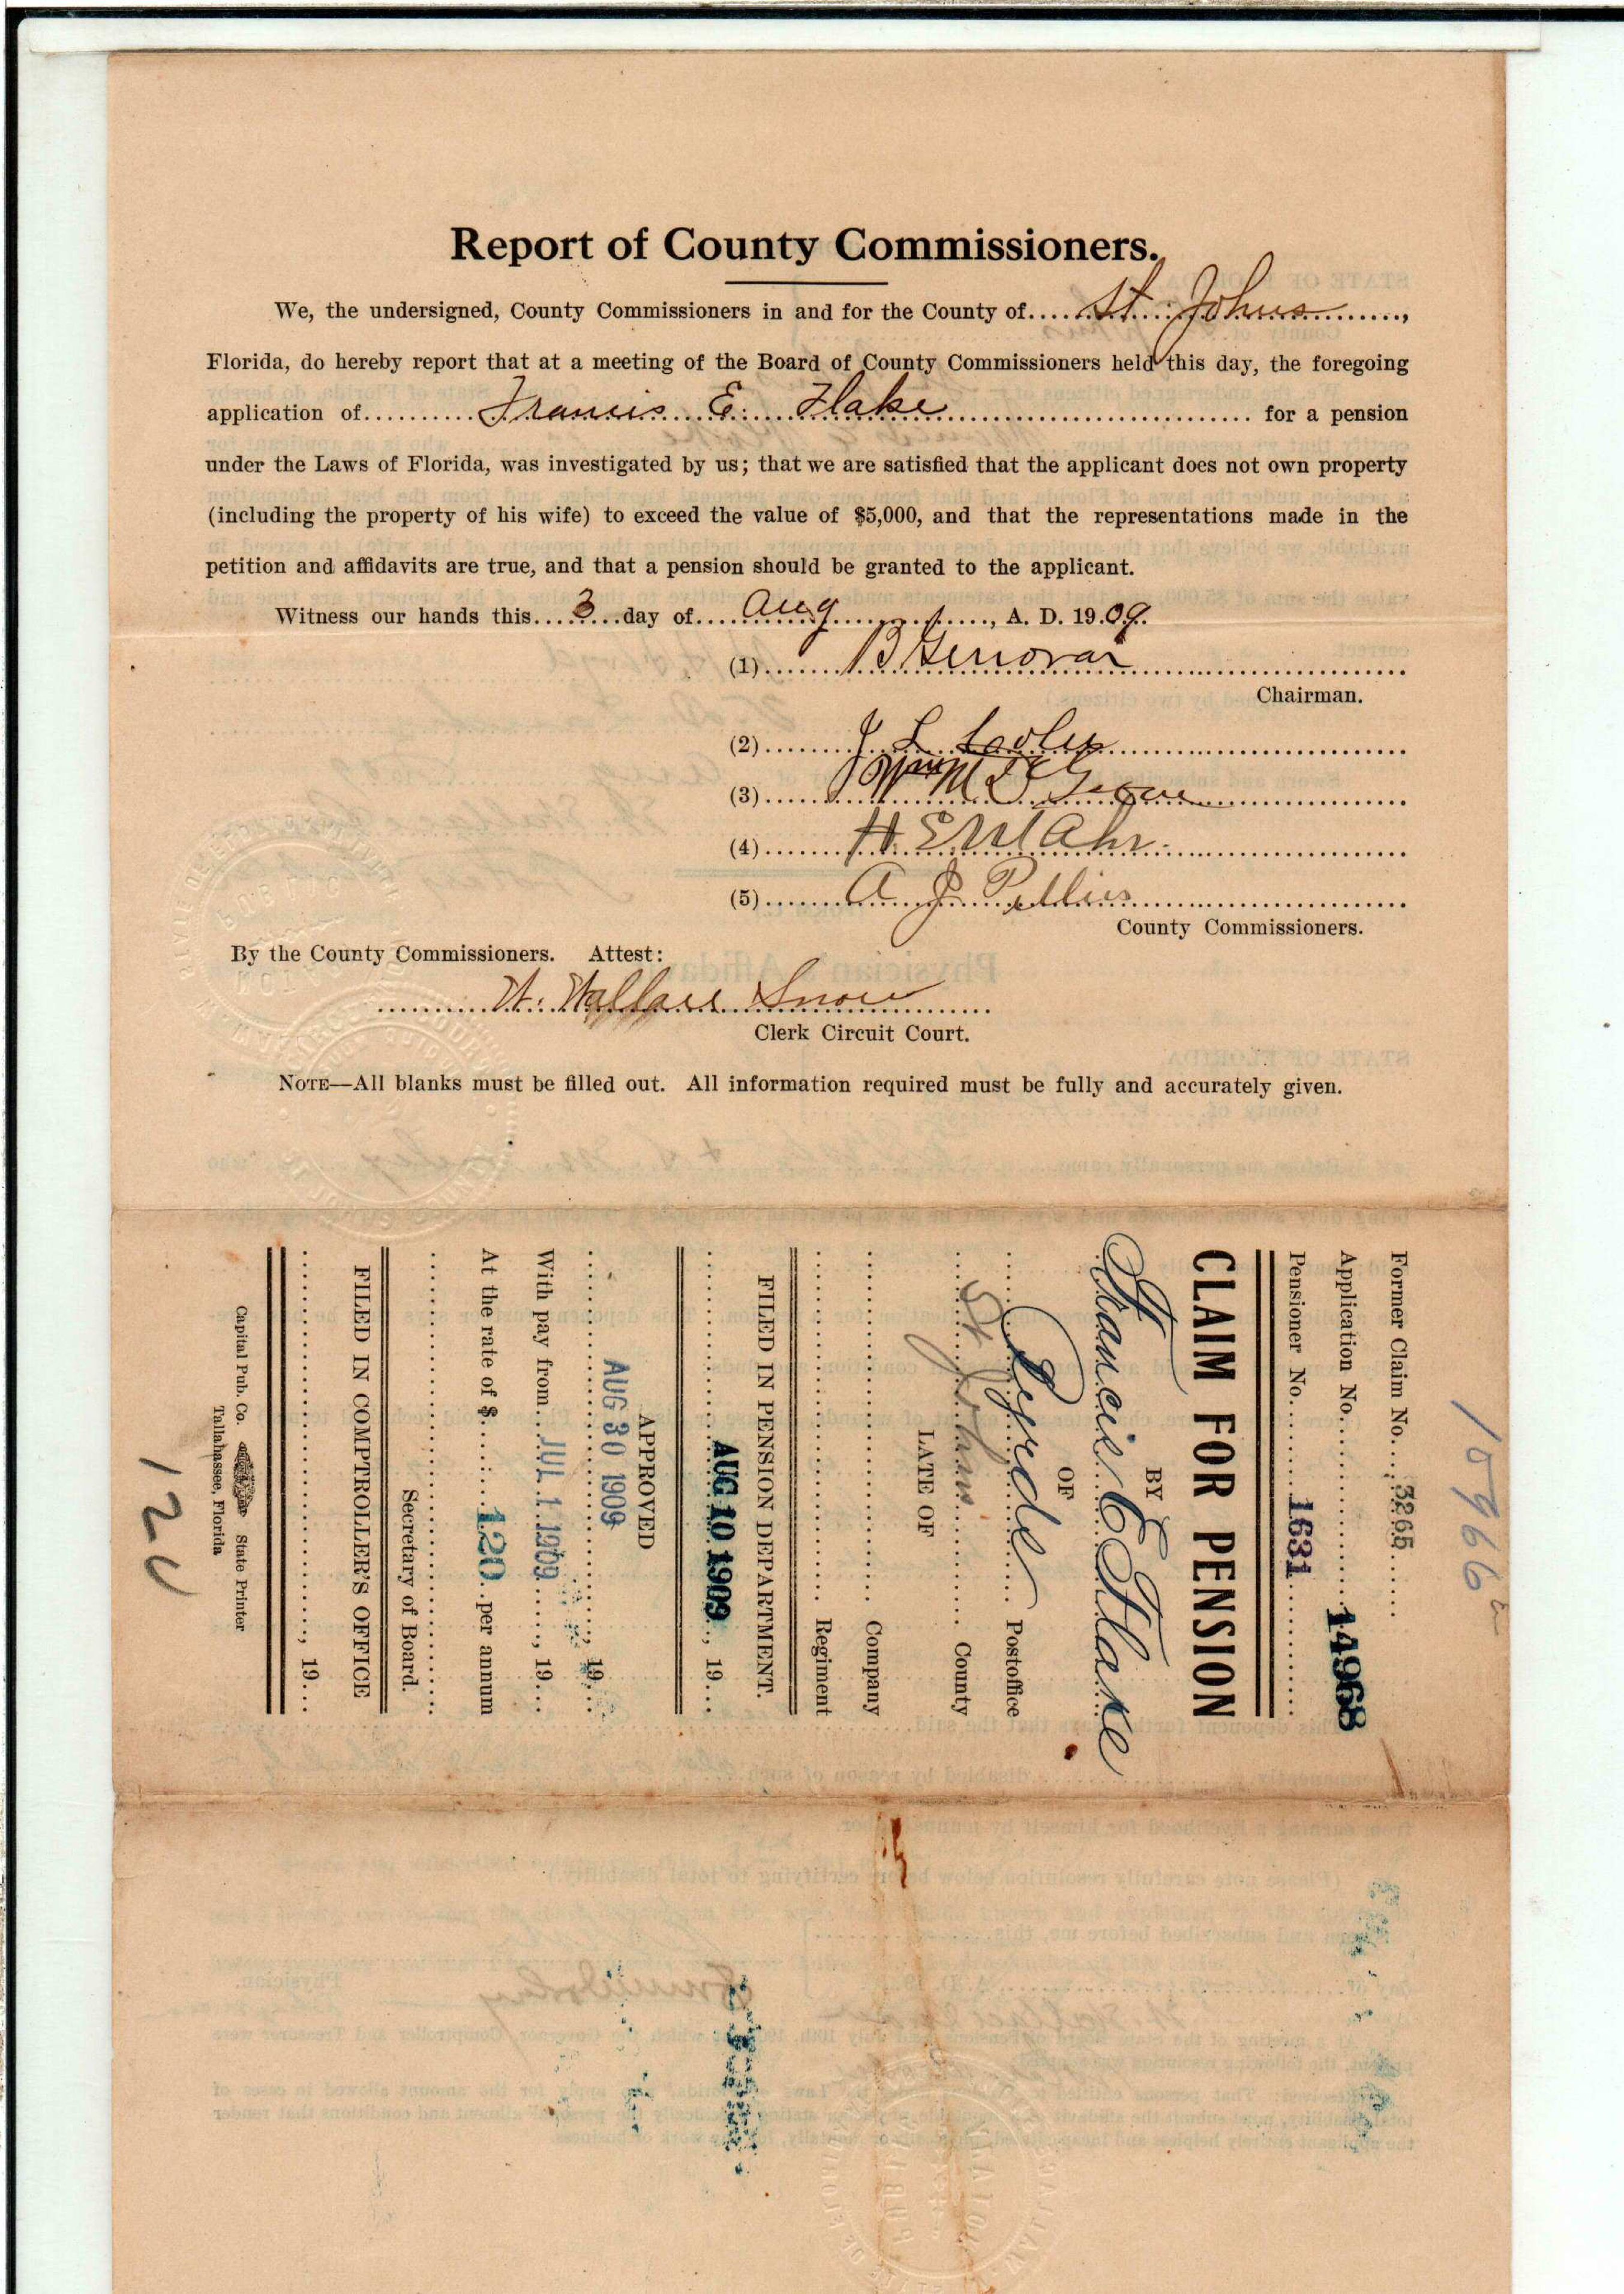 Report of County Commissioners.
We, the undersigned, County Commissioners in and for the County of....St. Johns........,
Florida, do hereby report that at a meeting of the Board of County Commissioners held this day, the foregoing
application of..........Francis E. Flake.......... for a pension
under the Laws of Florida, was investigated by us; that we are satisfied that the applicant does not own property
(including the property of his wife) to exceed the value of $5,000, and that the representations made in the
petition and affidavits are true, and that a pension should be granted to the applicant.
Witness our hands this....3....day of....Aug........, A. D. 1909.
(1).......B Genovar
Chairman.
(2).......J L
(3).......Wm M
(4).......H E W
(5).......A J
County Commissioners.
By the County Commissioners. Attest:
W. Wallace Snow
Clerk Circuit Court.
NOTE—All blanks must be filled out. All information required must be fully and accurately given.
Former Claim No....3265......
Application No..........14968
Pensioner No........1631..........
CLAIM FOR PENSION
BY
Francis E Flake
OF
Postoffice
St Johns County
LATE OF
Company
Regiment
FILED IN PENSION DEPARTMENT.
AUG 10 1909., 19...
APPROVED
AUG 30 1909, 19...
With pay from...JUL 1 1909....., 19...
At the rate of $.......120..per annum
Secretary of Board.
FILED IN COMPTROLLER'S OFFICE
, 19...
Capital Pub. Co. State Printer
Tallahassee, Florida
120